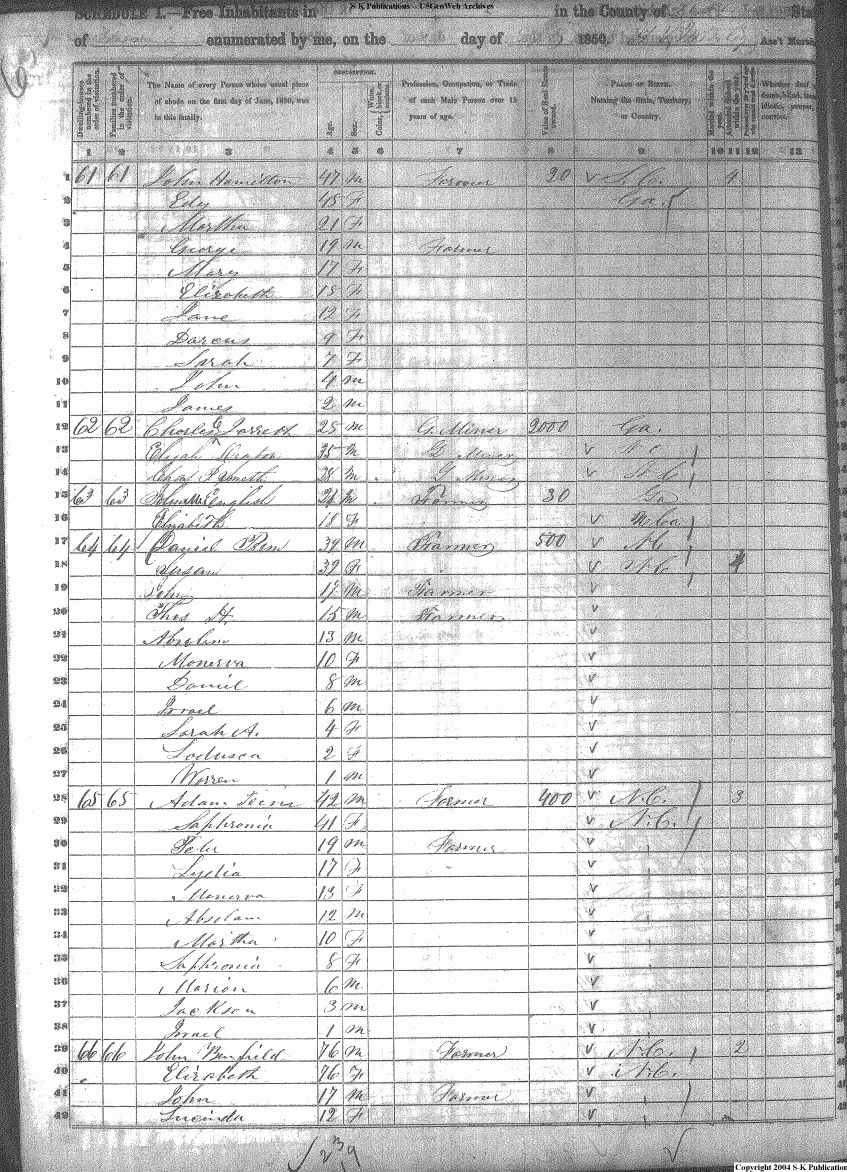 S-K Publications - USGenWeb Archives
SCHEDULE I.—Free Inhabitants in in the County of State
of enumerated by me, on the day of 1850. Ass't Marshal
DESCRIPTION.
Dwelling-houses numbered in the order of visitation. Families numbered in the order of visitation. The Name of every Person whose usual place of abode on the first day of June, 1850, was in this family. Age. Sex. White, black, or mulatto. Color, Profession, Occupation, or Trade of each Male Person over 15 years of age. Value of Real Estate owned. PLACE OF BIRTH. Naming the State, Territory, or Country. Married within the year. Attended School within the year. Whether deaf dumb, blind, insane, idiotic, pauper, convict.
1 2 3 4 5 6 7 8 9 10 11 12 13
1 61 61 John Hamilton 47 M Farmer 20 v S.C. 4
2 Edy 45 F Ga.
3 Martha 21 F
4 George 19 M Farmer
5 Mary 17 F
6 Elizabeth 15 F
7 Jane 12 F
8 Darcus 9 F
9 Sarah 7 F
10 John 4 M
11 James 2 M
12 62 62 Charles Jarrett 25 M G. Miner 2000 Ga.
13 Elijah 35 M G Miner v N C
14 Smith 28 M G Miner v
15 63 63 John English 21 M Farmer 30 Ga
16 Elizabeth 18 F v
17 64 64 David 39 M Farmer 500 v N.C
18 Susan 39 F v N.C 4
19 John 17 M Farmer v
20 Thos H. 15 M Farmer v
21 Absolem 13 M v
22 Monerva 10 F v
23 Daniel 8 M v
24 Israel 6 M v
25 Sarah A. 4 F v
26 Lodusca 2 F v
27 Warren 1 M v
28 65 65 Adam 42 M Farmer 400 v N.C. 3
29 Saphronia 41 F v N.C.
30 Peter 19 M Farmer v
31 Lydia 17 F v
32 Monerva 13 F v
33 Absolam 12 M v
34 Martha 10 F v
35 Saphronia 8 F v
36 Marion 6 M v
37 Jackson 3 M v
38 Israel 1 M v
39 66 66 John Benfield 76 M Farmer v N.C. 2
40 Elizabeth 76 F v N.C.
41 John 17 M Farmer v
42 Lucinda 12 F v
Copyright 2004 S-K Publications